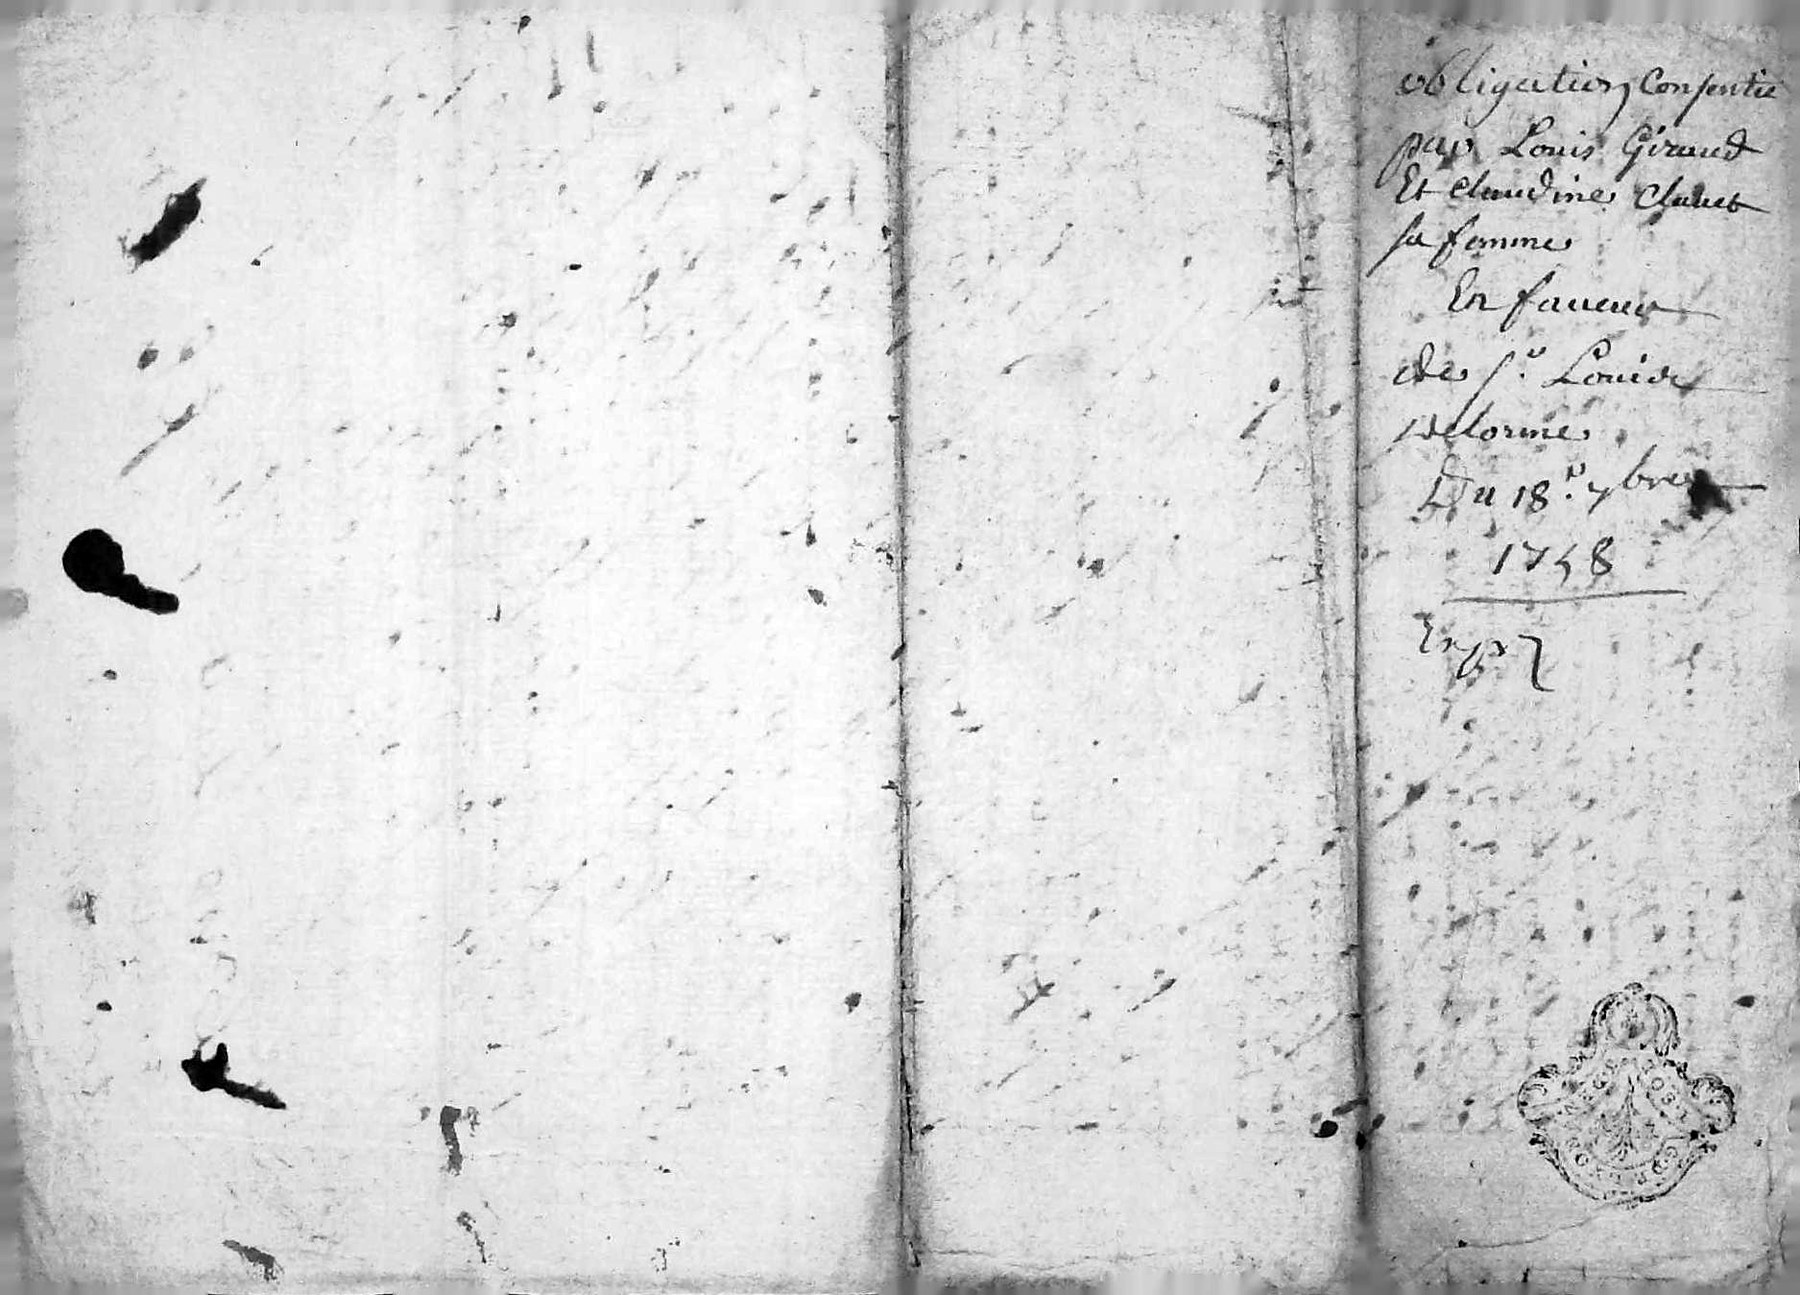 obligation Consentie
par Louis Giraud
Et claudine Clauet
sa femme
En faueur
de Sr. Louis
Delorme
Du 18e. 7bre
1748
Exp